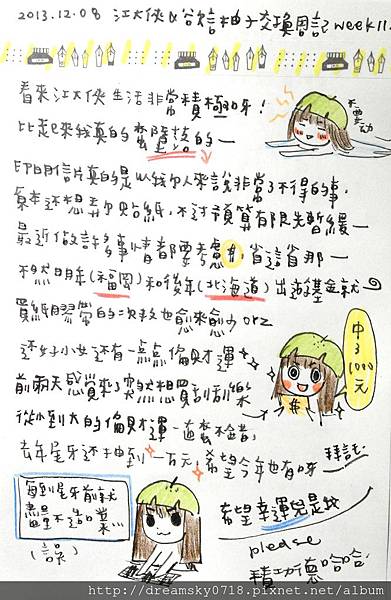 2013.12.08 江大俠&谷怡柚子交換周記 week11.
看來江大俠生活非常積極呀!
不要動
比起來我真的蠻隨性的—
印明信片真的是以我個人來說非常了不得的事,
原本還想弄貼紙,不過預算有限先暫緩—
最近做許多事情都要考慮$,省這省那—
不然明年(福岡)和後年(北海道)出遊基金就
買紙膠帶的次數也愈來愈少orz
還好小女還有一點點偏財運
前兩天感覺來了突然想買刮刮樂
從小到大的偏財運一直都不錯,
去年尾牙還抽到一百元,希望今年也有呀—拜託
中了1000元
每到尾牙前就
盡量不造業…
(誤)
希望幸運兒是我
please
積功德哈哈.
http://dreamsky0718.pixnet.net/album